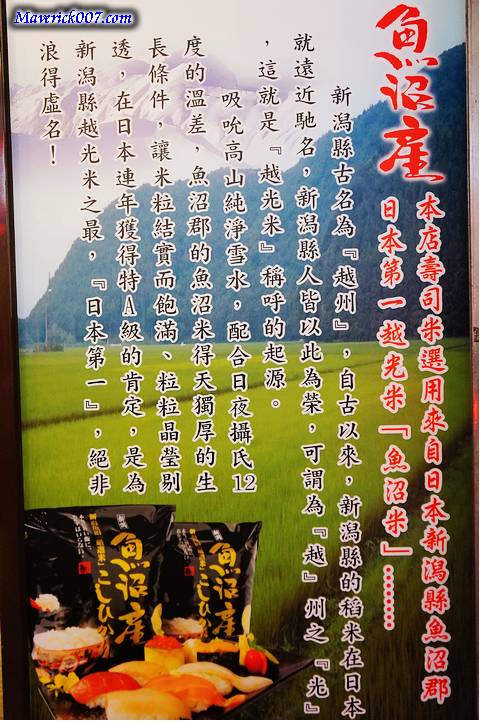 Maverick007.com
魚沼産
本店壽司米選用來自日本新潟縣魚沼郡
日本第一越光米「魚沼米」………
新潟縣古名為『越州』，自古以來，新潟縣的稻米在日本
就遠近馳名，新潟縣人皆以此為榮，可謂為『越』州之『光』
，這就是『越光米』稱呼的起源。
吸吮高山純淨雪水，配合日夜攝氏12
度的溫差，魚沼郡的魚沼米得天獨厚的生
長條件，讓米粒結實而飽滿、粒粒晶瑩剔
透，在日本連年獲得特A級的肯定，是為
新潟縣越光米之最，『日本第一』，絕非
浪得虛名！
魚沼産
こしひかり
魚沼産
こしひかり